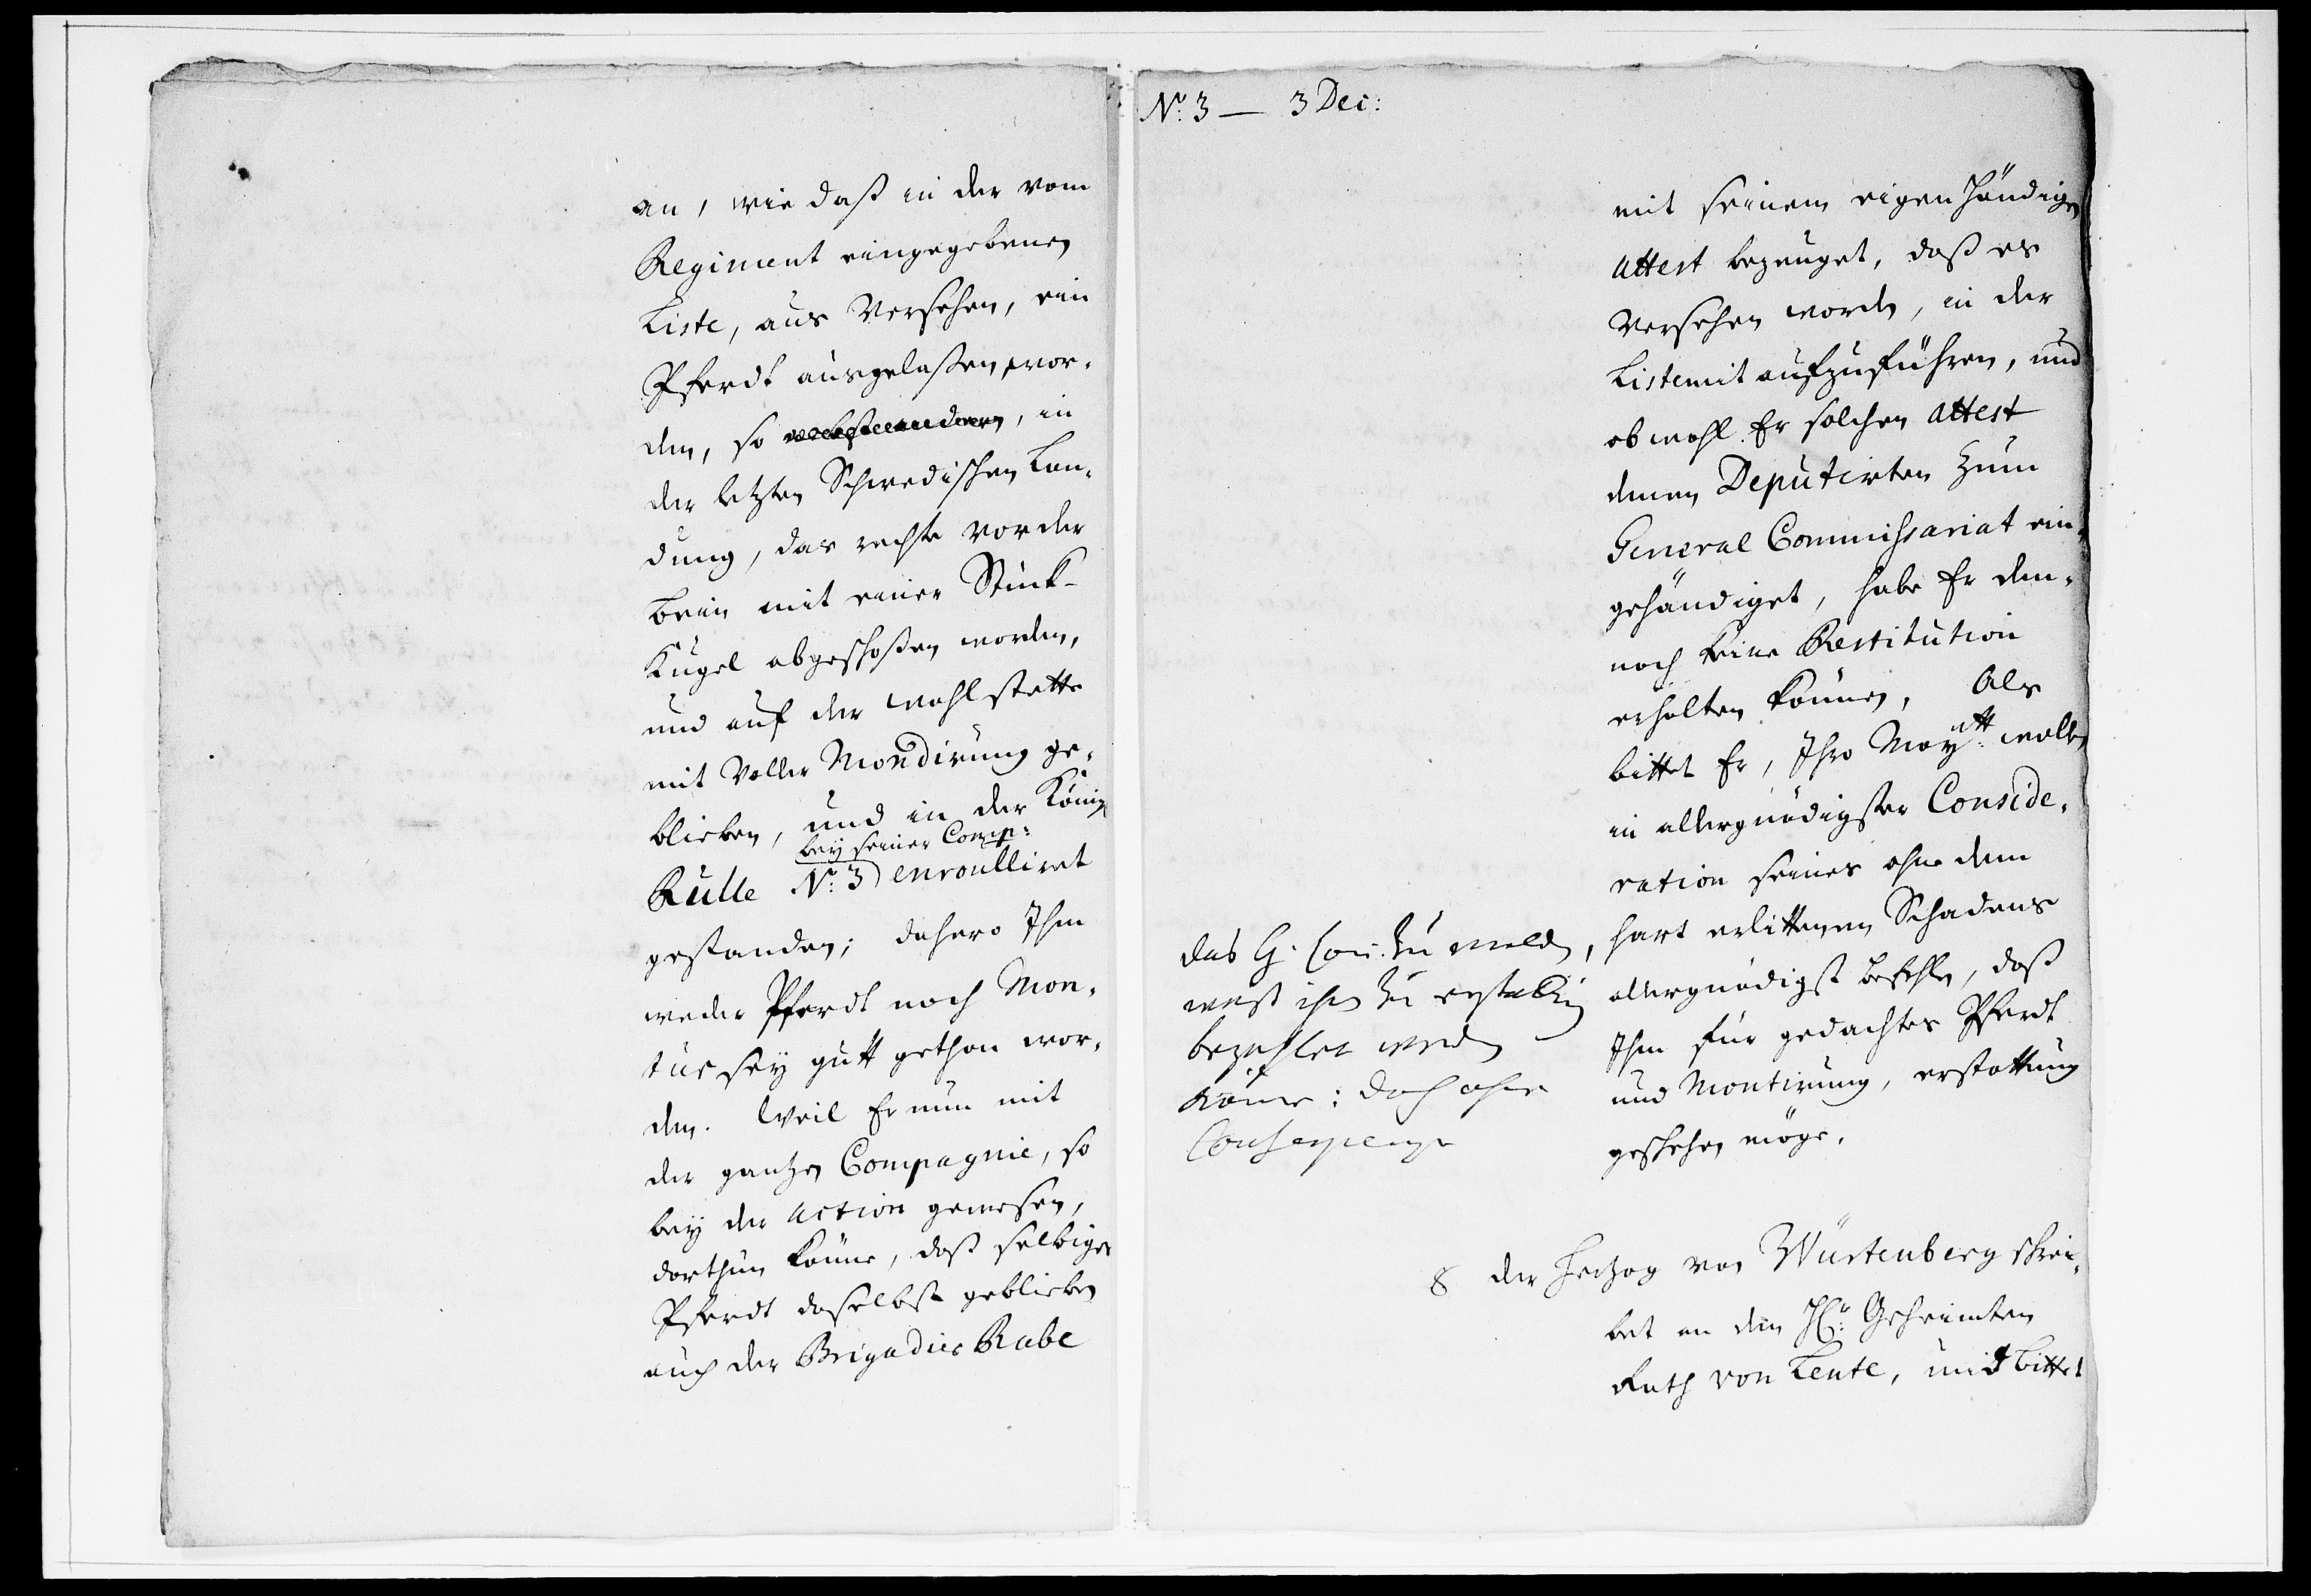 an, wie daß in der vom
Regiment eingegebenen
Liste, aus Versehen, ein
Pferdt ausgelaßen wor-
den, so in
der letzten Schwedischen Lan-
dung, das rechte vorder
bein mit einer Stück-
Kugel abgeschoßen worden,
und auf der wahlstette
mit voller Mondirung ge-
blieben, und in der König
bey seiner Comp:
Rulle No: 3 enroulliret
gestanden; dahero Ihm
weder Pferdt noch Mon-
tur sey gutt gethan wor-
den. Weil Er nun mit
der gantzen Compagnie, so
bey der Action gewesen,
darthun könne, daß selbiges
Pferdt daselbst geblieben
auch der Brigadier Rabe
No: 3 — 3 Dec:
mit seinem eigenhändigen
Attest bezeuget, daß es
versehen worden, in der
Liste mit aufzuführen, und
obwohl Er solchen Attest
denen Deputirten zum
General Commissariat ein-
gehändiget, habe Er den-
noch keine Restitution
erhalten können, Als
bittet Er, Ihro Maytt: wollen
in allergnädigster Conside-
ration seines ohne dem
hart erlittenen Schadens
allergnädigst befehlen, daß
Ihm für gedachtes Pferdt
und Montirung, erstattung
geschehen möge.
das G. Com: zu melden,
waß ihm zu
bezahlet werden
könne: doch ohne
Consequenze
8 der Hertzog von Würtenberg schrei-
bet an den HEr: Geheimten
Rath von Lente, und bittet